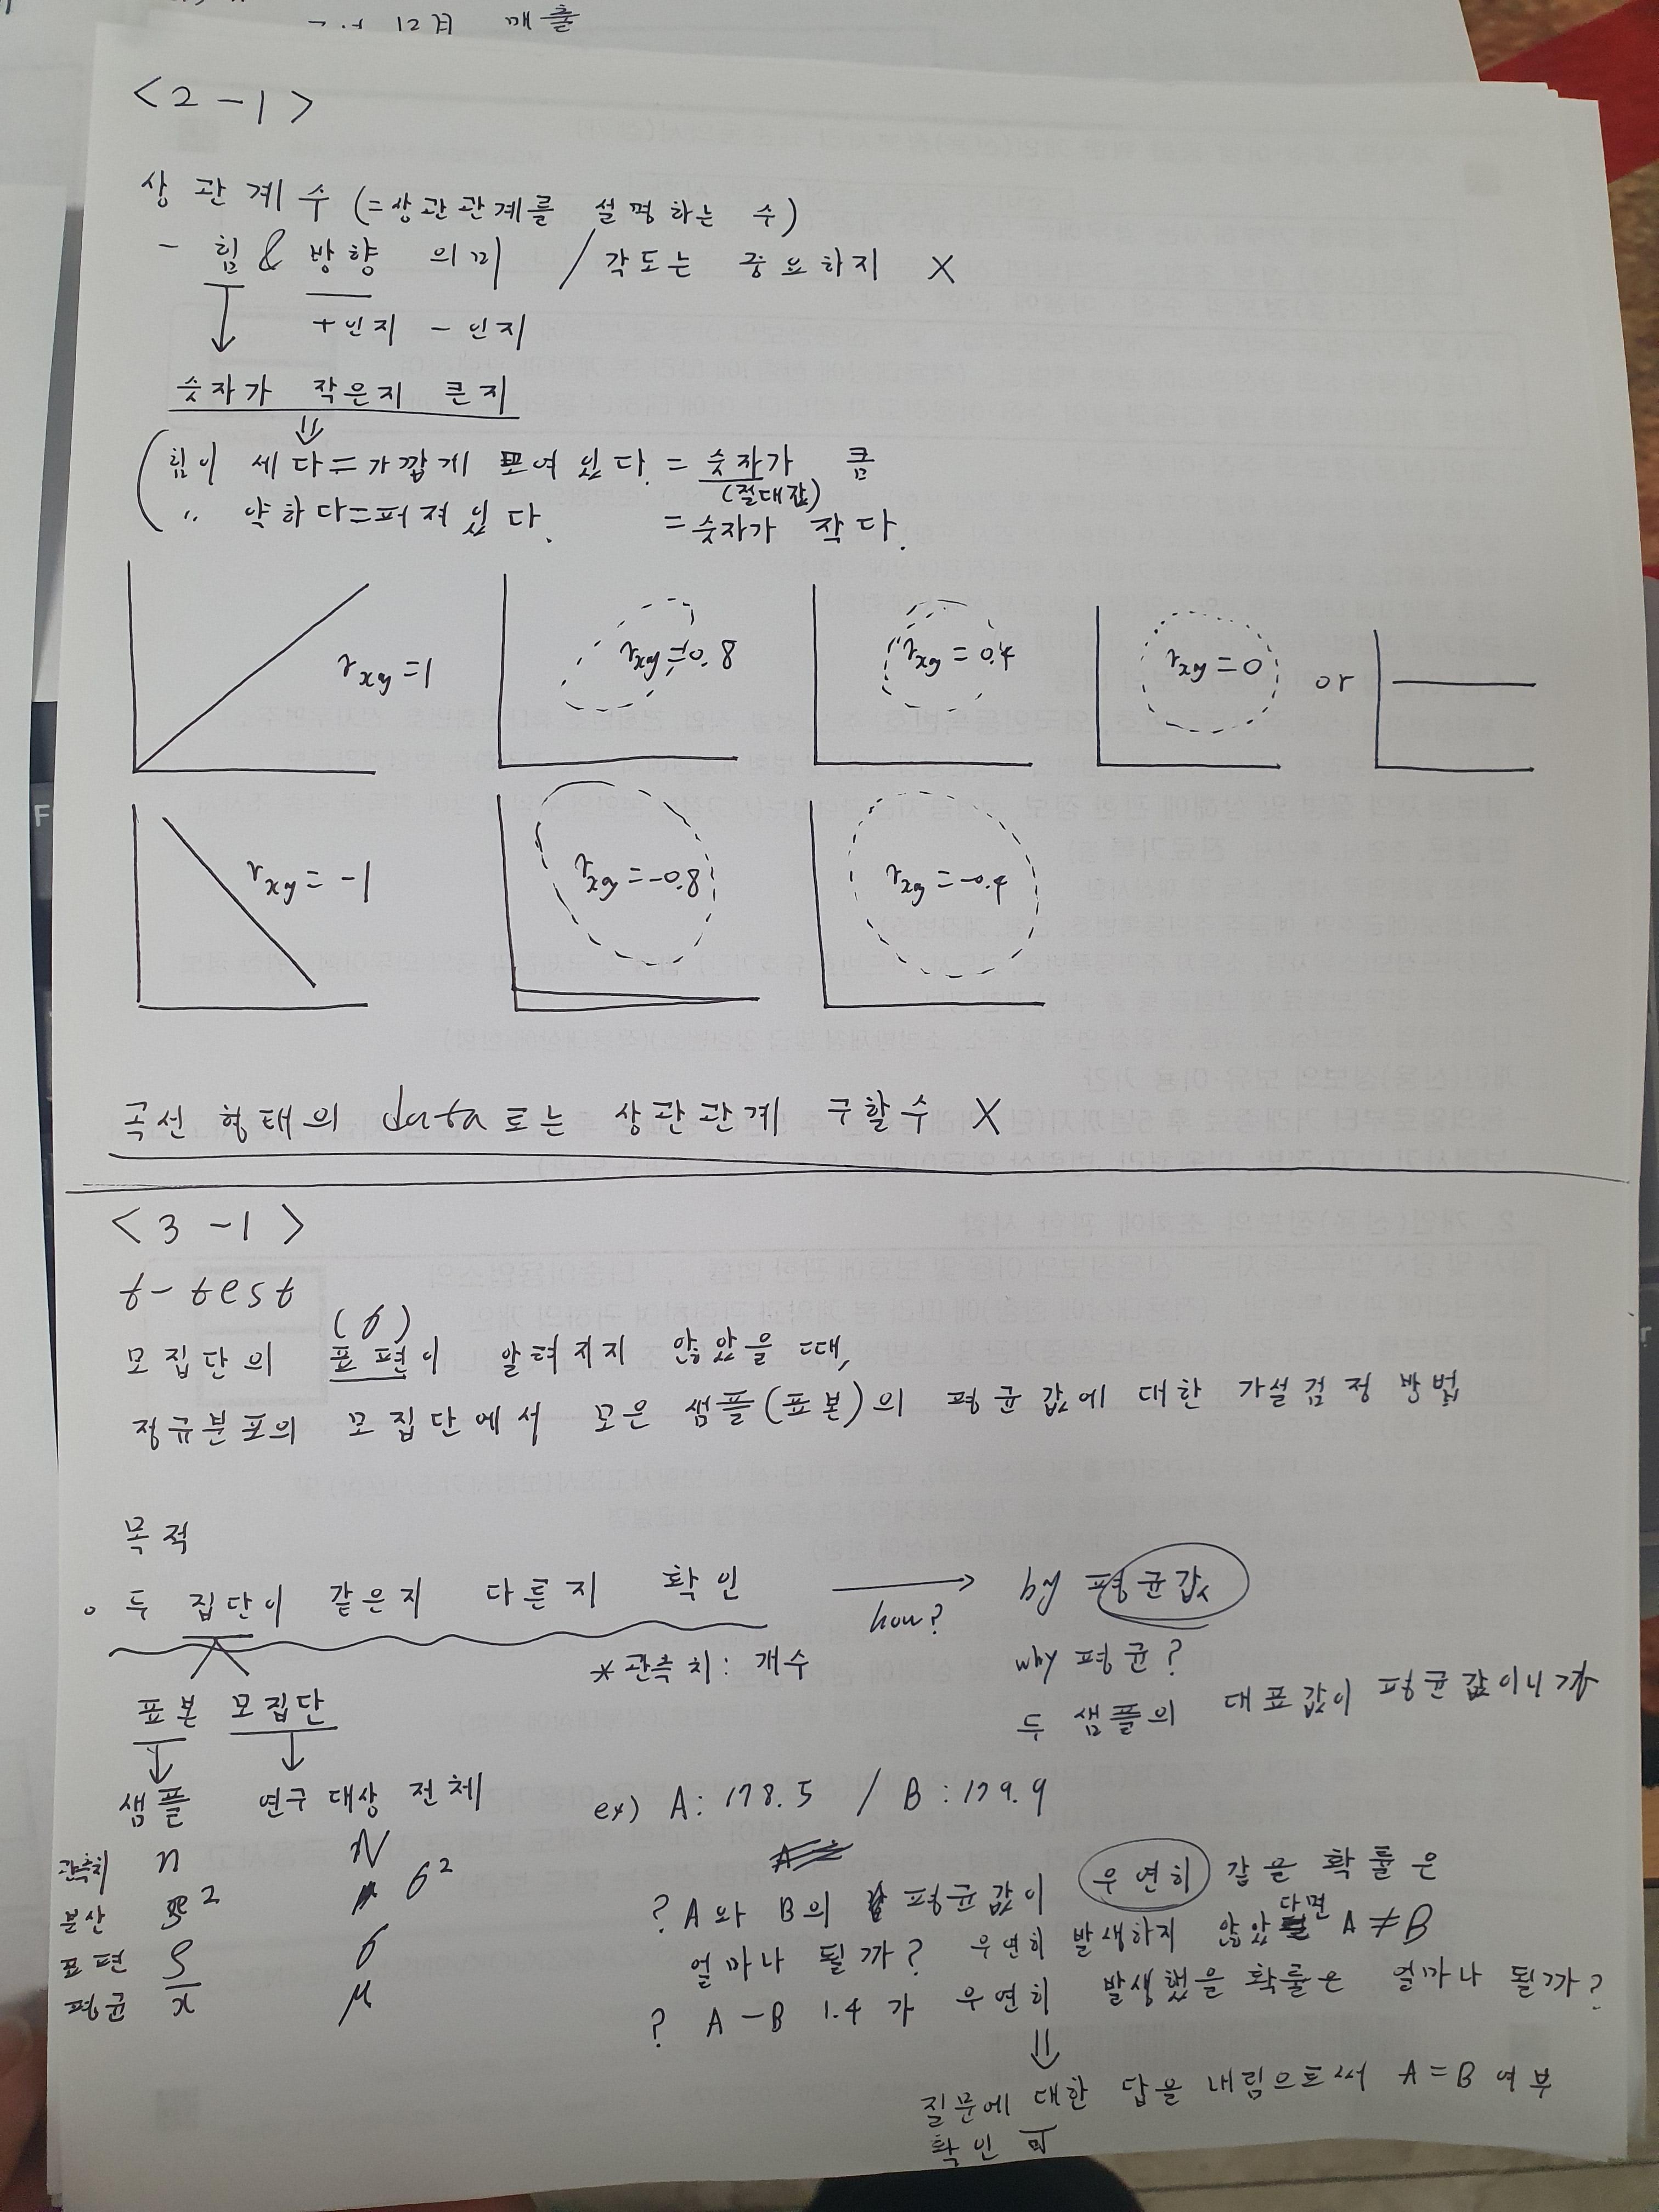 12월 매출
<2-1>
상관계수 (=상관관계를 설명하는 수)
- 힘 & 방향 의미 / 각도는 중요하지 X
+인지 -인지
숫자가 작은지 큰지
힘이 세다=가깝게 모여있다. = 숫자가 큼
(절대값)
〃 약하다=퍼져있다. = 숫자가 작다.
rxy=1
rxy=0.8
rxy=0.4
rxy=0
or
rxy=-1
rxy=-0.8
rxy=-0.4
곡선 형태의 data로는 상관관계 구할수 X
<3-1>
t-test
(σ)
모집단의 표편이 알려지지 않았을 때,
정규분포의 모집단에서 모은 샘플(표본)의 평균값에 대한 가설검정 방법
목적
o 두 집단이 같은지 다른지 확인 → by 평균값
how?
*관측치: 개수
why 평균?
두 샘플의 대표값이 평균값이니까
표본 모집단
샘플 연구 대상 전체
ex) A: 178.5 / B: 179.9
관측치 n N
분산 S² σ²
표편 S σ
평균 x̄ μ
? A와 B의 평균값이 우연히 같을 확률은
얼마나 될까? 우연히 발생하지 않았다면 A≠B
? A-B 1.4가 우연히 발생했을 확률은 얼마나 될까?
질문에 대한 답을 내림으로써 A=B 여부
확인 可